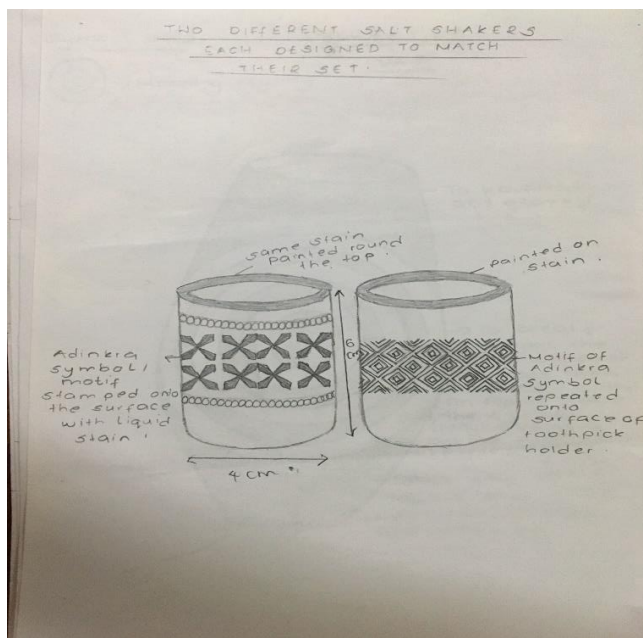 TWO DIFFERENT SALT SHAKERS
EACH DESIGNED TO MATCH
THEIR SET.
same stain
painted round
the top.
painted on
stain.
Adinkra
symbol/
motif
stamped onto
the surface
with liquid
stain.
6cm
Motif of
Adinkra
symbol
repeated
onto
surface of
toothpick
holder.
4cm